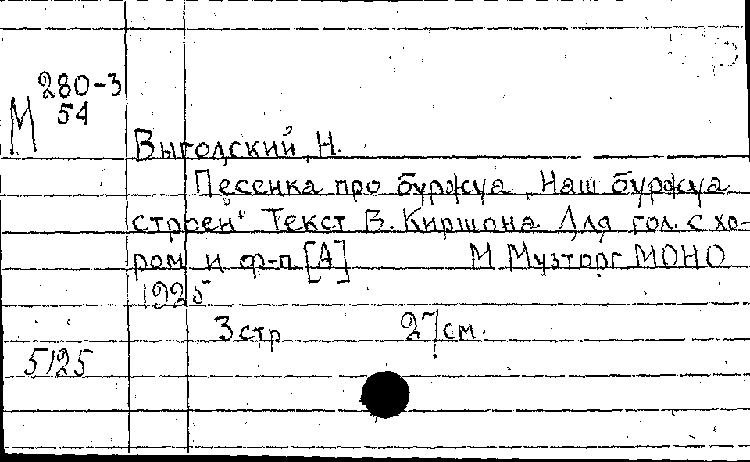 М 280-3
54
Выгодский, Н.
Песенка про буржуа „Наш буржуа
строен" Текст В. Киршона. Для гол. с хо-
ром и ф-п. [А] М. Музторг МОНО
1925
3 стр 27 см.
5125